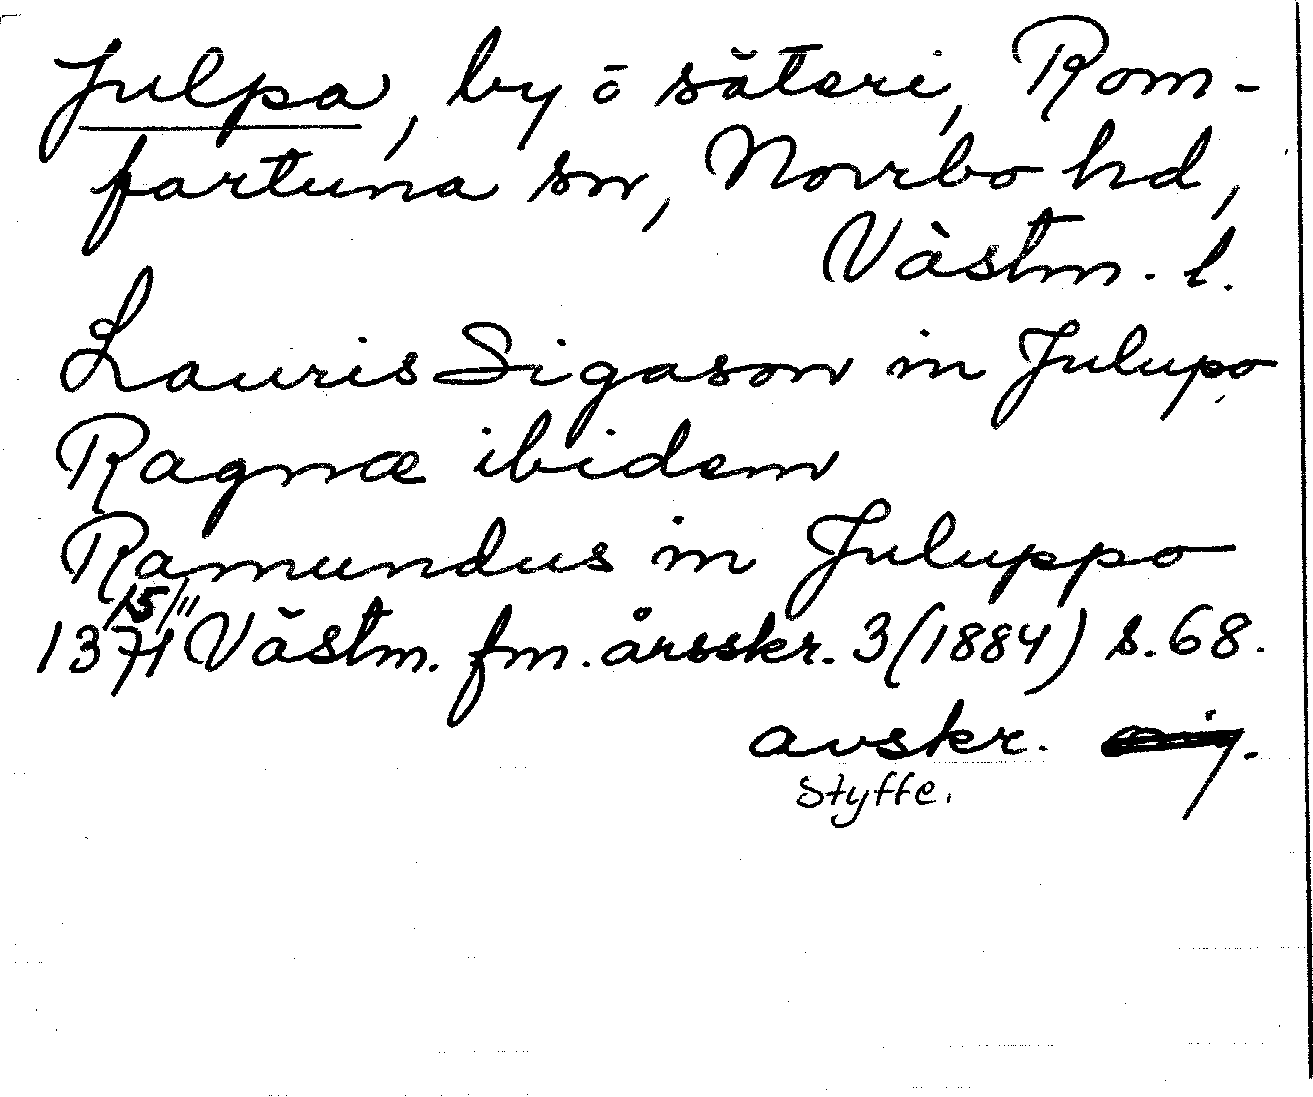 Julpa, by o säteri, Rom-
fartuna sn, Norrbo hd,
Västm. l.
Lauris Sigason in Julupo
Ragnæ ibidem
Ramundus in Juluppo
1371 15/11 Västm. fm. årsskr. 3 (1884) s. 68.
avskr.
Styffe.